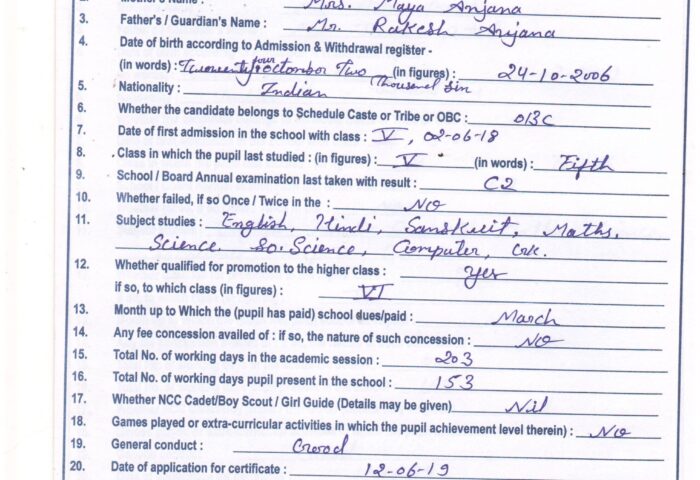 2. Mother's Name : Mrs. Maya Anjana
3. Father's / Guardian's Name : Mr. Rakesh Anjana
4. Date of birth according to Admission & Withdrawal register -
(in words) : Twowenty four octombor Two Thousand Sin (in figures) : 24-10-2006
5. Nationality : Indian
6. Whether the candidate belongs to Schedule Caste or Tribe or OBC : OBC
7. Date of first admission in the school with class : V, 02-06-18
8. Class in which the pupil last studied : (in figures) : V (in words) : Fifth
9. School / Board Annual examination last taken with result : C2
10. Whether failed, if so Once / Twice in the : NO
11. Subject studies : English, Hindi, Sanskrit, Maths.
Science. So. Science, Computer, Grk.
12. Whether qualified for promotion to the higher class : yes
if so, to which class (in figures) : VI
13. Month up to Which the (pupil has paid) school dues/paid : March
14. Any fee concession availed of : if so, the nature of such concession : NO
15. Total No. of working days in the academic session : 203
16. Total No. of working days pupil present in the school : 153
17. Whether NCC Cadet/Boy Scout / Girl Guide (Details may be given) Nil
18. Games played or extra-curricular activities in which the pupil achievement level therein) : NO
19. General conduct : Good
20. Date of application for certificate : 12-06-19